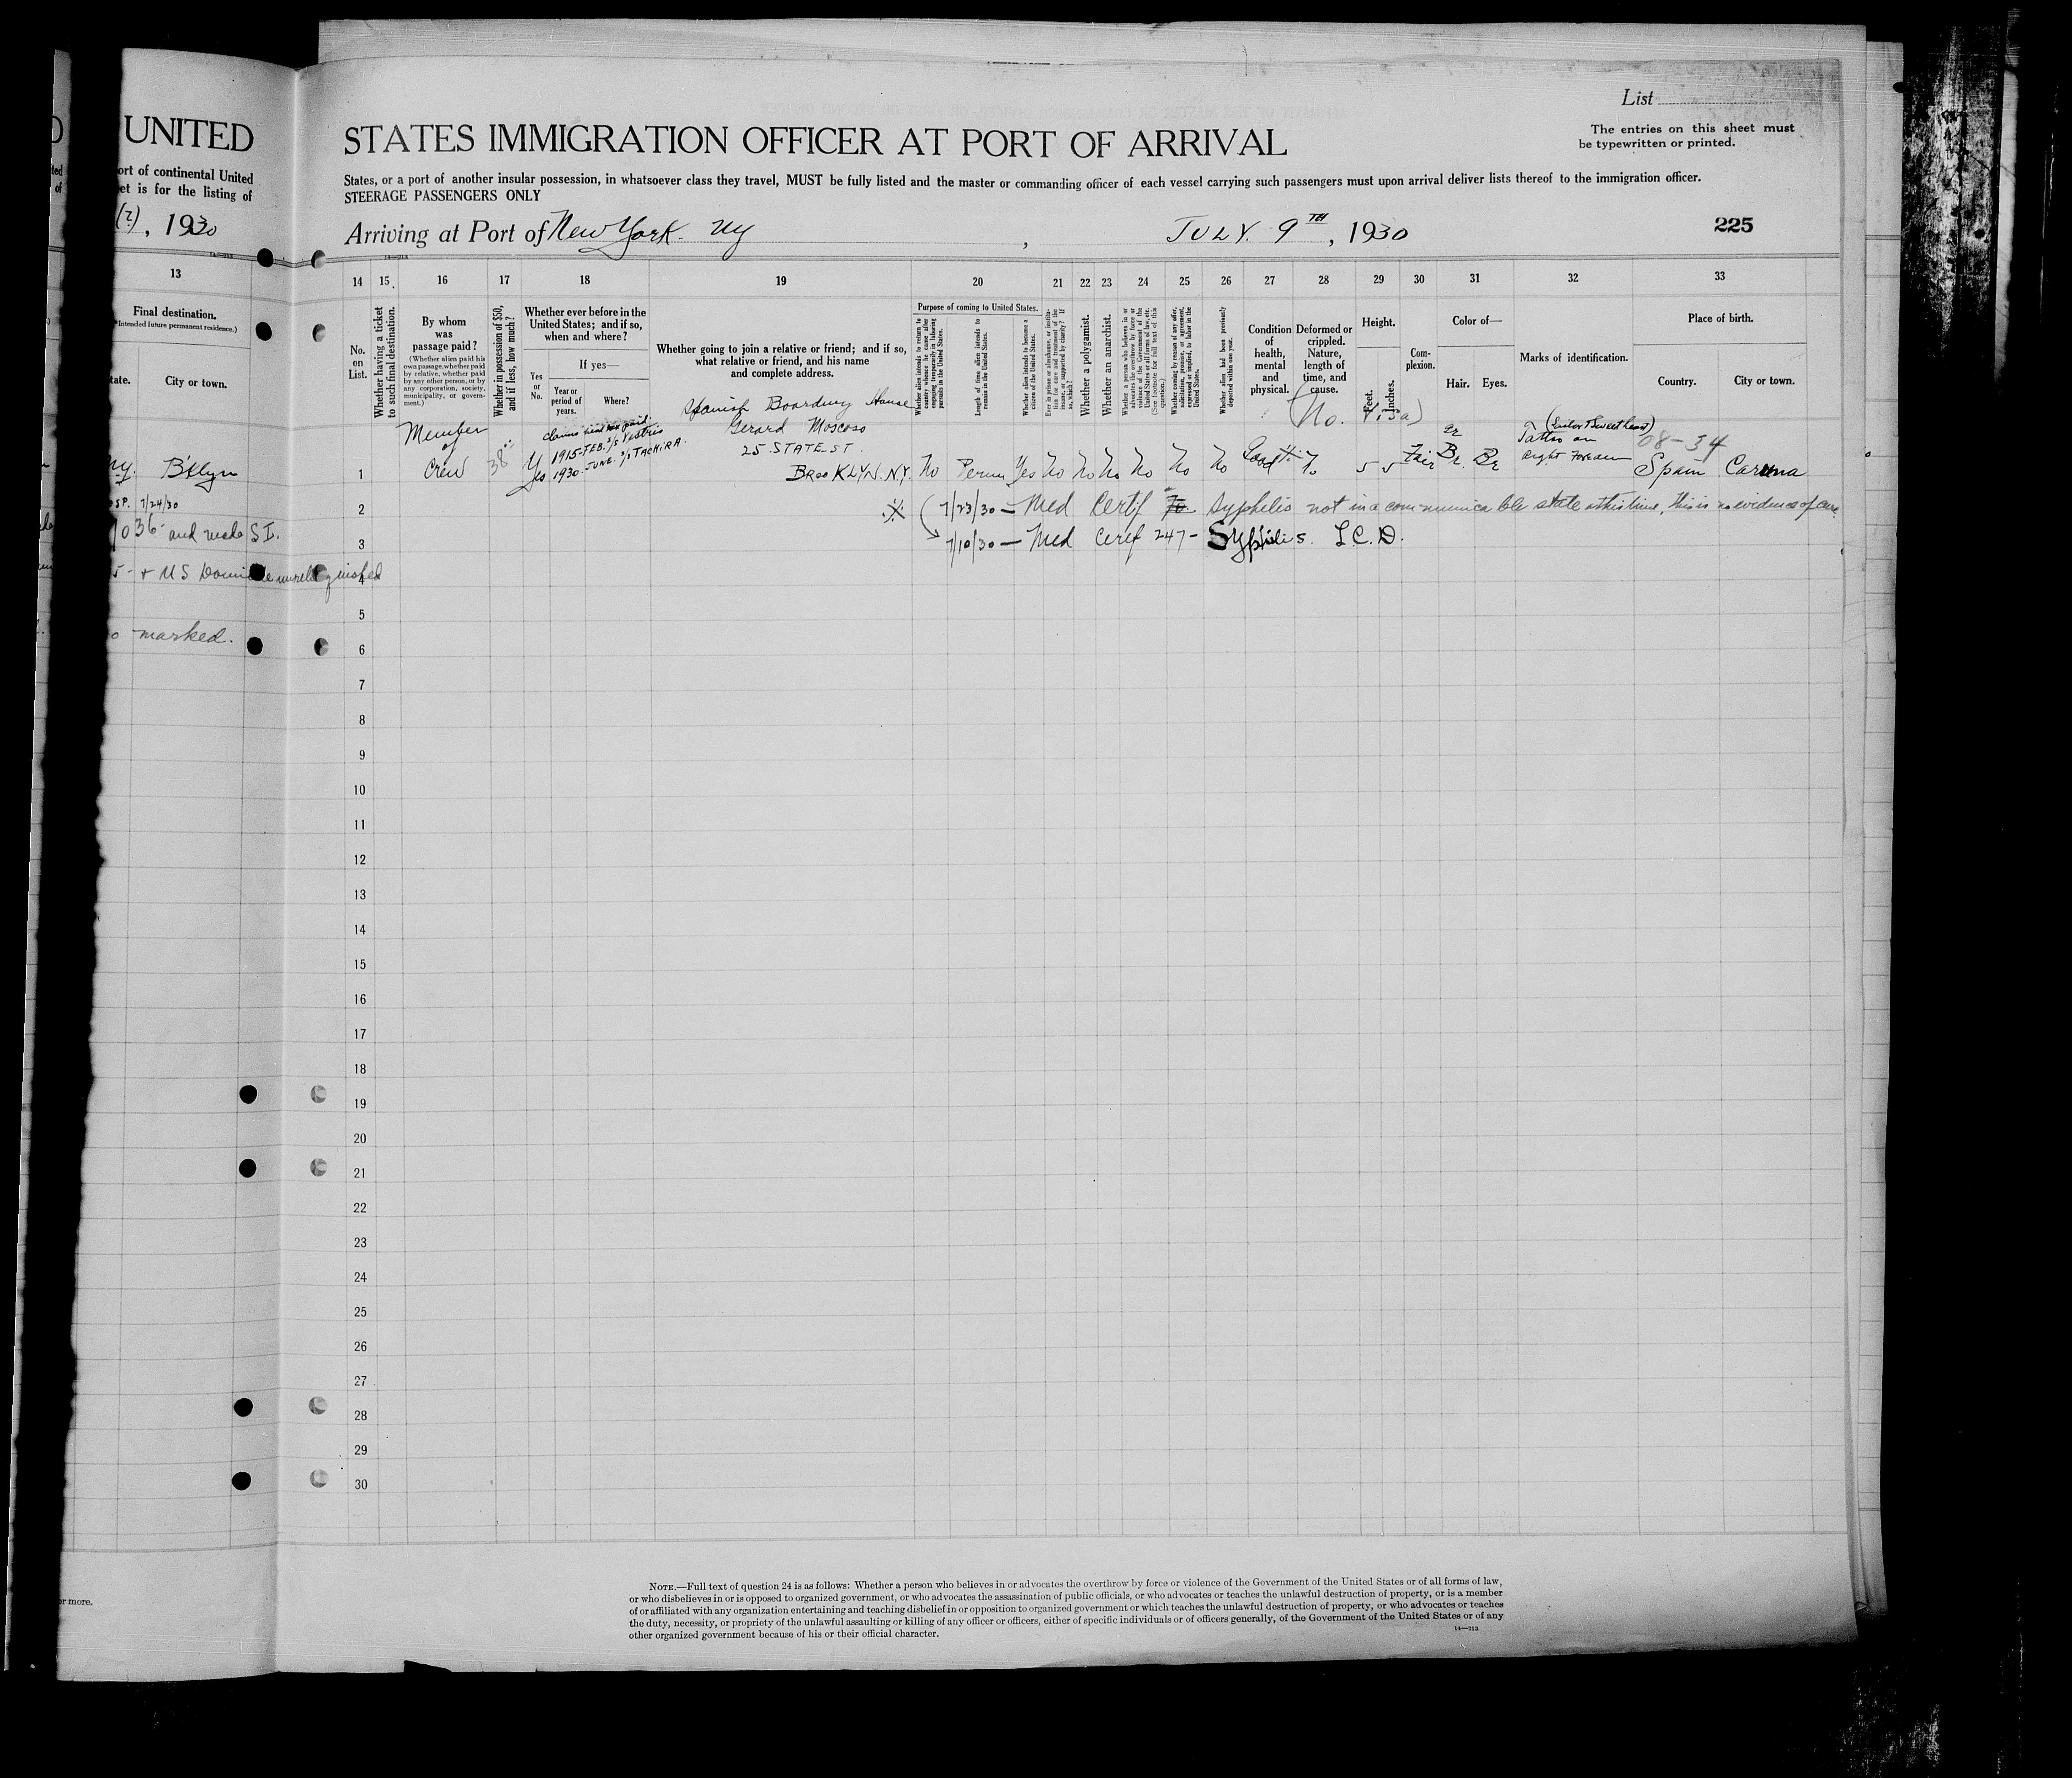 List
UNITED STATES IMMIGRATION OFFICER AT PORT OF ARRIVAL
The entries on this sheet must
be typewritten or printed.
ort of continental United States, or a port of another insular possession, in whatsoever class they travel, MUST be fully listed and the master or commanding officer of each vessel carrying such passengers must upon arrival deliver lists thereof to the immigration officer.
et is for the listing of STEERAGE PASSENGERS ONLY
, 1930 Arriving at Port of New York. NY , JULY. 9TH, 1930 225
14—213
13 14 15 16 17 18 19 20 21 22 23 24 25 26 27 28 29 30 31 32 33
Final destination.
(*Intended future permanent residence.)
tate.
City or town.
No.
on
List.
Whether having a ticket
to such final destination.
By whom
was
passage paid?
(Whether alien paid his
own passage, whether paid
by relative, whether paid
by any other person, or by
any corporation, society,
municipality, or govern-
ment.)
Whether in possession of $50,
and if less, how much?
Whether ever before in the
United States; and if so,
when and where?
Yes
or
No.
If yes—
Year or
period of
years.
Where?
Whether going to join a relative or friend; and if so,
what relative or friend, and his name
and complete address.
Purpose of coming to United States.
Whether alien intends to return to
country whence he came after
engaging temporarily in laboring
pursuits in the United States.
Length of time alien intends to
remain in the United States.
Whether alien intends to become a
citizen of the United States.
Ever in prison or almshouse, or institu-
tion for care and treatment of the
insane, or supported by charity? If
so, which?
Whether a polygamist.
Whether an anarchist.
Whether a person who believes in or
advocates the overthrow by force or
violence of the Government of the
United States or all forms of law, etc.
(See footnote for full text of this
question.)
Whether coming by reason of any offer,
solicitation, promise, or agreement,
expressed or implied, to labor in the
United States.
Whether alien had been previously
deported within one year.
Condition
of
health,
mental
and
physical.
Deformed or
crippled.
Nature,
length of
time, and
cause.
Height.
Feet.
Inches.
Com-
plexion.
Color of—
Hair.
Eyes.
Marks of identification.
Place of birth.
Country.
City or town.
(No. Visa)
Spanish Boarding House
Member
of
Crew
38
Gerard Moscoso
25 STATE ST.
BrooKLYN. N.Y.
Yes
1915-FEB. S/S Vestris
1930 JUNE. S/S TACHIRA
Tattoo on
right Forearm
08-34
ny. B'klyn 1 No Perm Yes No No No No No No Good No 5 5 Fair Br. Br Spain Caruna
SP. 7/24/30
2 7/23/30 — Med Certif Syphilis not in a communicable state at this time, this is no evidence of cure
1036- and made S I.
3 7/10/30 — Med Certf 247- Syphilis L.C.D.
5- + US Domicile unrelinquished
4
5
o marked.
6
7
8
9
10
11
12
13
14
15
16
17
18
19
20
21
22
23
24
25
26
27
28
29
30
NOTE.—Full text of question 24 is as follows: Whether a person who believes in or advocates the overthrow by force or violence of the Government of the United States or of all forms of law,
or who disbelieves in or is opposed to organized government, or who advocates the assassination of public officials, or who advocates or teaches the unlawful destruction of property, or is a member
of or affiliated with any organization entertaining and teaching disbelief in or opposition to organized government or which teaches the unlawful destruction of property, or who advocates or teaches
the duty, necessity, or propriety of the unlawful assaulting or killing of any officer or officers, either of specific individuals or of officers generally, of the Government of the United States or of any
other organized government because of his or their official character.
14—213
or more.